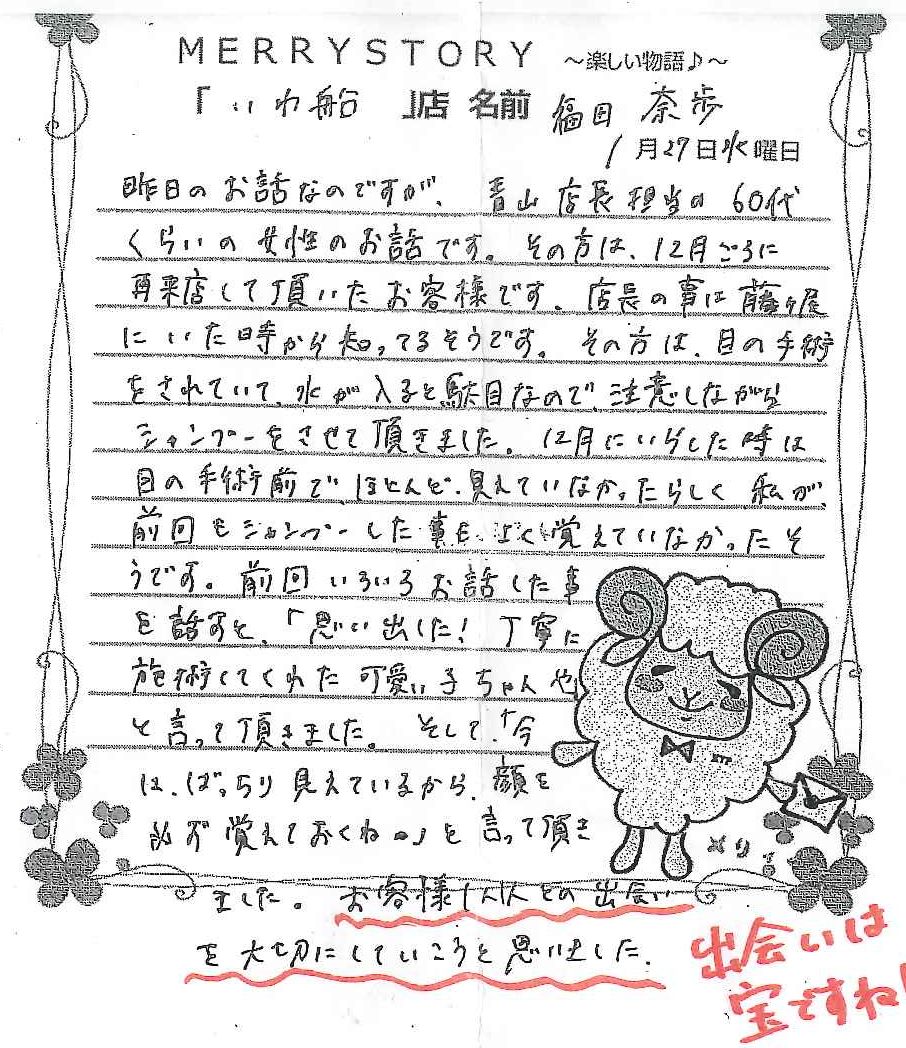 MERRYSTORY ～楽しい物語♪～
「いわ船 」店 名前 福田 奈歩
1月27日水曜日
昨日のお話なのですが、青山店長担当の60代
くらいの女性のお話です。その方は、12月ごろに
再来店して頂いたお客様です。店長の事は藤ヶ屋
にいた時から知ってるそうです。その方は、目の手術
をされていて、水が入ると駄目なので、注意しながら
シャンプーをさせて頂きました。12月にいらした時は
目の手術前で、ほとんど、見えていなかったらしく 私が、
前回もシャンプーした事も、よく覚えていなかったそ
うです。前回いろいろお話した事
を話すと、「思い出した！丁寧に
施術してくれた可愛い子ちゃんや」
と言って頂きました。そして、「今
は、ばっちり見えているから、顔を
必ず覚えておくね。」と言って頂き
めりぃ
ました。お客様1人1人との出会い
を大切にしていこうと思いました。
出会いは
宝ですね!